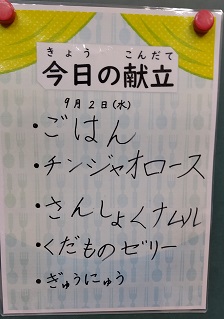 きょう こんだて
今日の献立
9月2日(水)
・ごはん
・チンジャオロース
・さんしょくナムル
・くだものゼリー
・ぎゅうにゅう